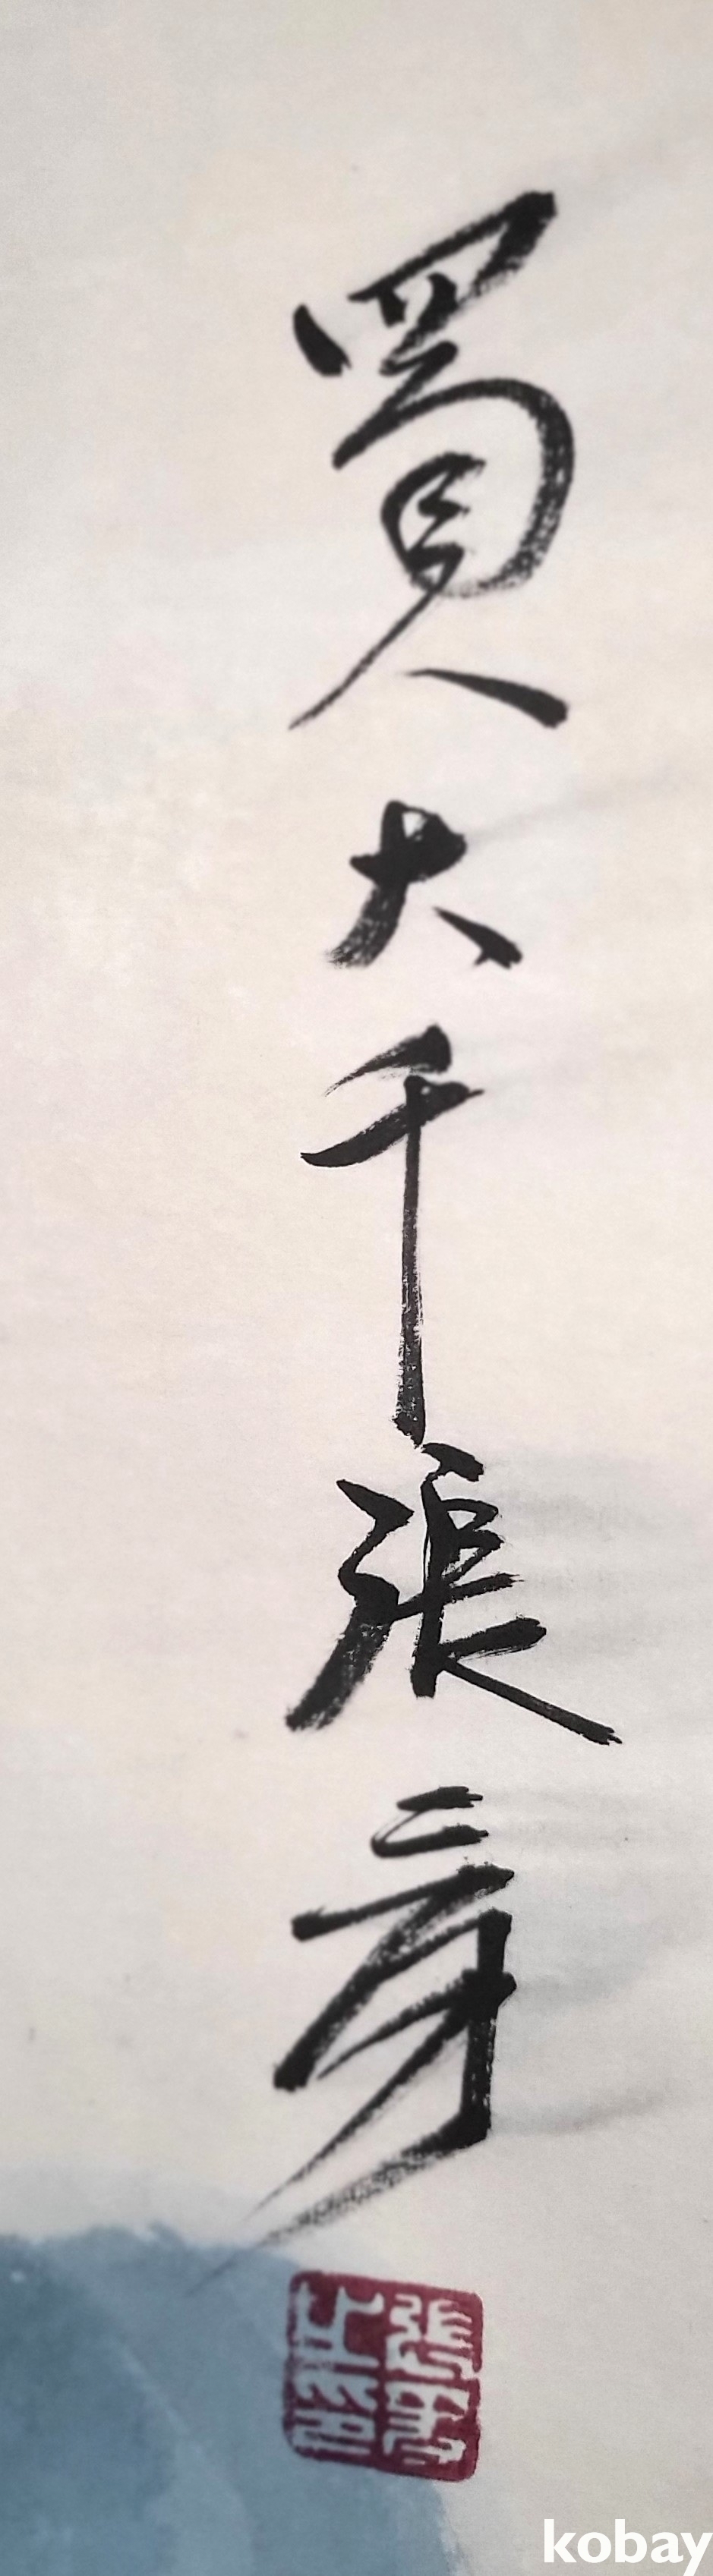 蜀人大千張爰
張爰之印
kobay